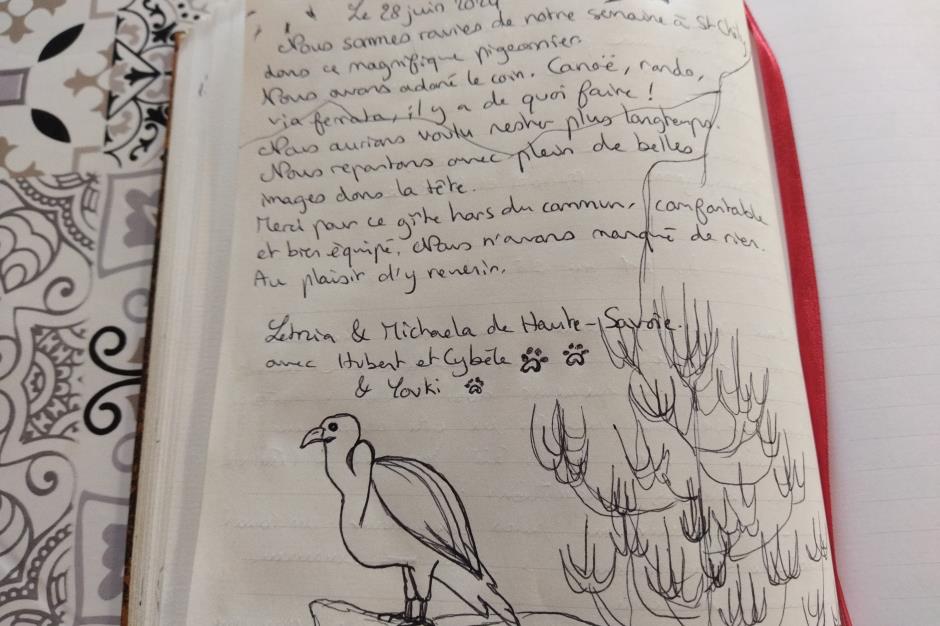 Le 28 juin 2024
Nous sommes ravies de notre semaine à St Chély
dans ce magnifique pigeonnier.
Nous avons adoré le coin. Canoë, rando,
via ferrata, il y a de quoi faire !
Nous aurions voulu rester plus longtemps.
Nous repartons avec plein de belles
images dans la tête.
Merci pour ce gîte hors du commun, confortable
et bien équipé. Nous n'avons manqué de rien.
Au plaisir d'y revenir.
& Michaela de Haute-Savoie.
avec Hubert et Cybèle
& Youki